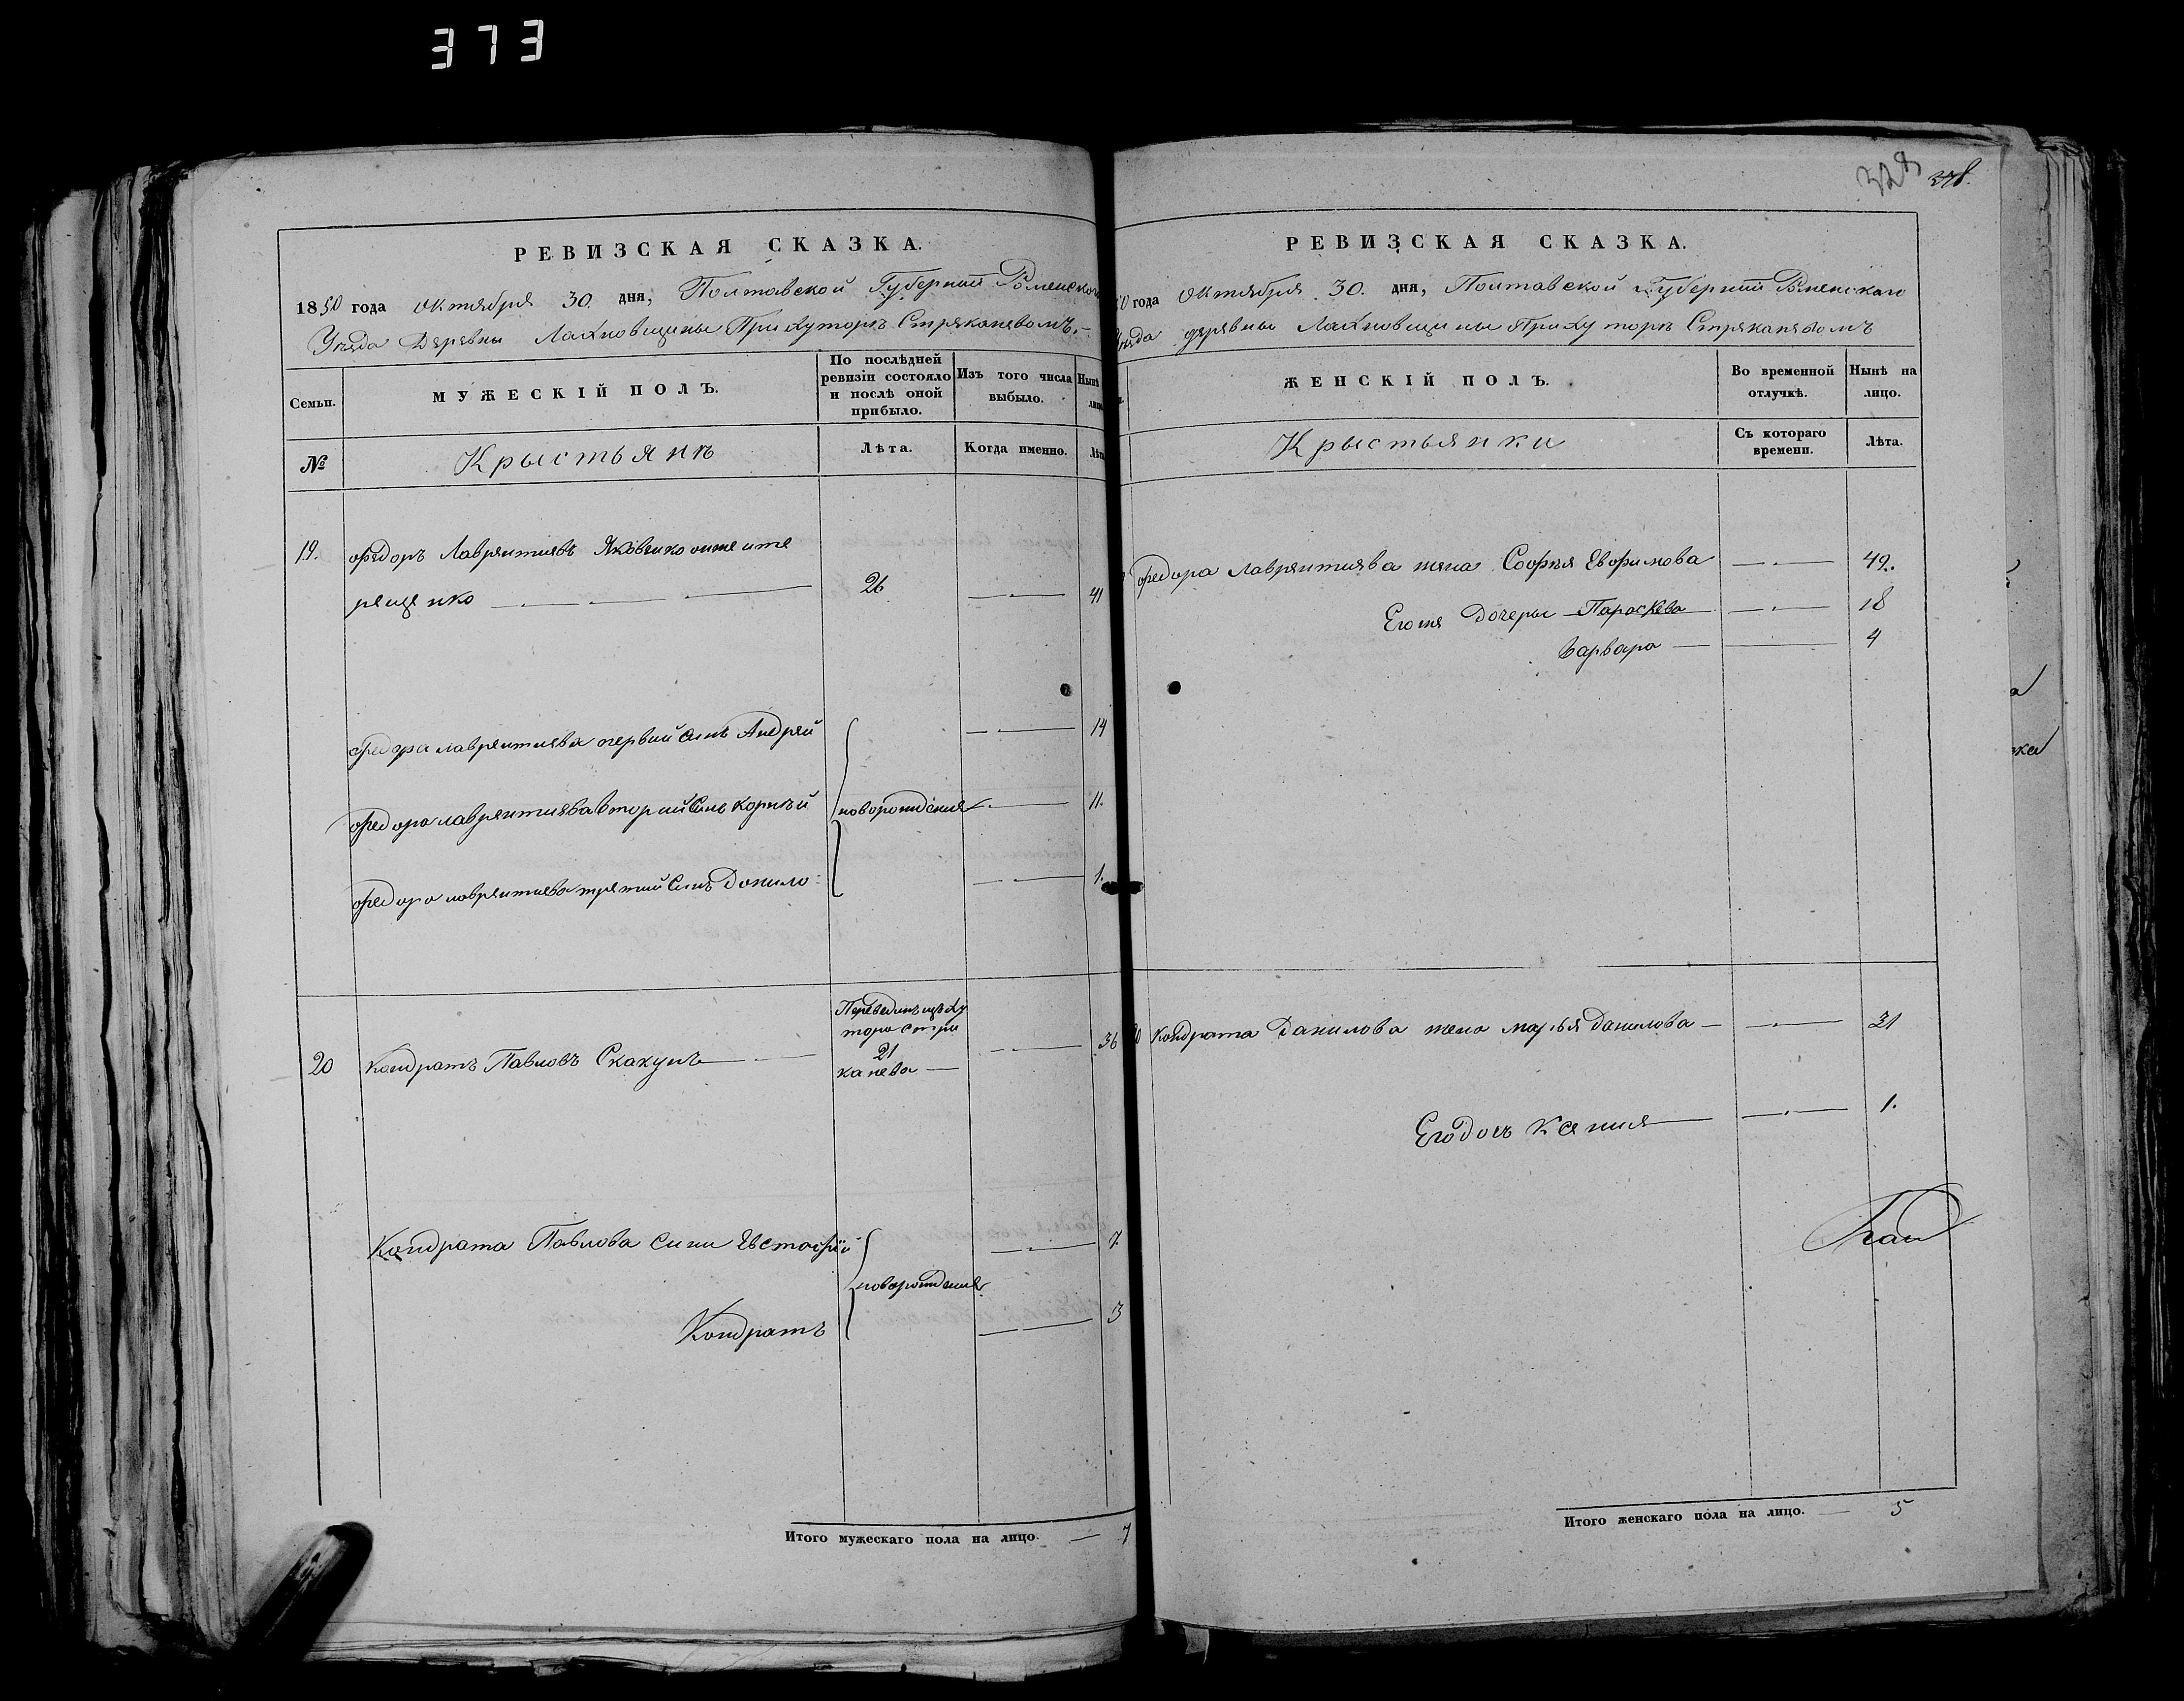 373
РЕВИЗСКАЯ СКАЗКА.
1850 года Октября 30. дня, Полтавской Губернiи Роменскаго
Уезда Деревны Лахновщины При хуторѣ Стряканевомъ.
Семьи.
МУЖЕСКІЙ ПОЛЪ.
По послѣдней ревизіи состояло и послѣ оной прибыло.
Изъ того числа выбыло.
Нынѣ
№
Крыстьянѣ
Лѣта.
Когда именно.
19. Федоръ Лаврентиевъ Яковенко онже ите
рещенко 26 41
Федора лаврентиева первий синъ Андрей 14
Федора лаврентиева вторий Синъ Корнѣй новорождения 11.
Федора лаврентиева третий Синъ Данило 1.
20 Кондратъ Павловъ Скакунъ
Перевединъ изъ ху
тора стри
21
канева
36
Кондрата Павлова сини Евстафiй 7
новорождения
Кондратъ 3
Итого мужескаго пола на лицо. 7
328 378.
РЕВИЗСКАЯ СКАЗКА.
50 года Октября 30. дня, Полтавской Губернiи Роменскаго
Уезда деревны Лахновщины При хуторѣ Стряканевомъ
ЖЕНСКІЙ ПОЛЪ.
Во временной отлучкѣ.
Нынѣ на лицо.
Крыстьянки
Съ котораго времени.
Лѣта.
Федора Лаврентиева жена Софья Евфимова 49.
Егоже Дочеры Параскева 18
Варвара 4
20 Кондрата Данилова жена марья данилова 31
Его дочь Ксения 1.
Итого женскаго пола на лицо. 5